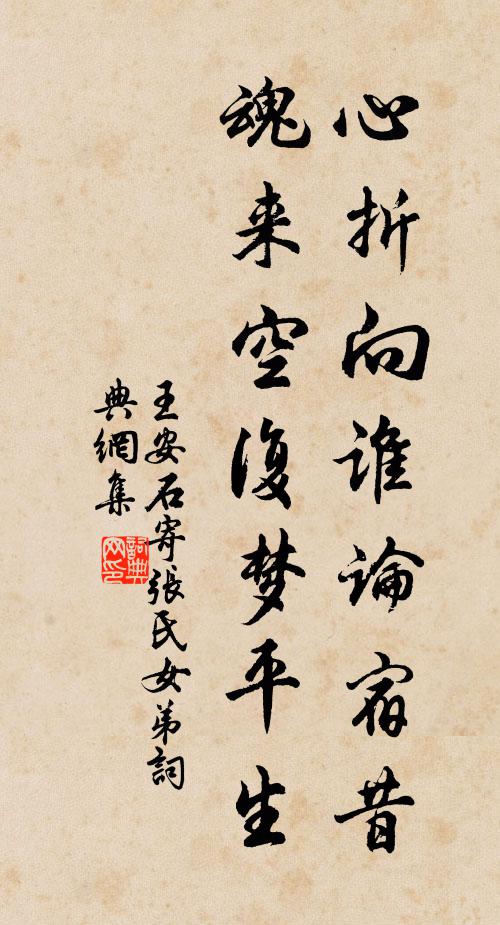 心折向谁論宿昔
魂来空復梦平生
王安石寄張氏女弟詞
典網集
詞典網印